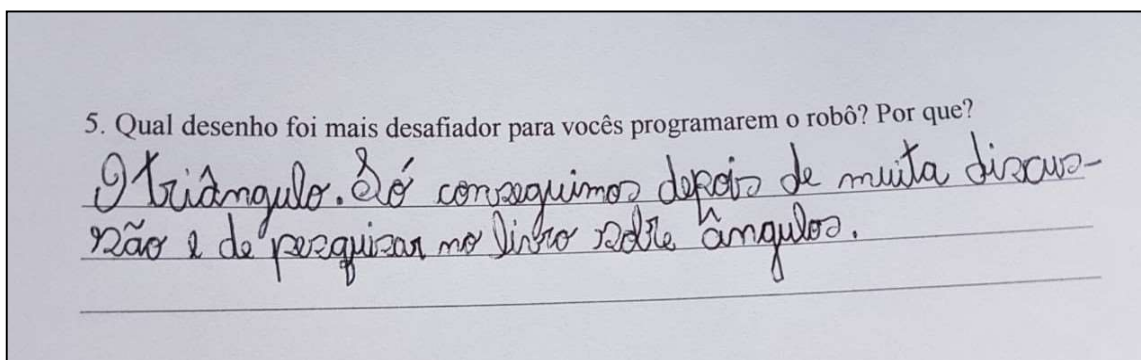 5. Qual desenho foi mais desafiador para vocês programarem o robô? Por que?
O triângulo. Só conseguimos depois de muita discus-
são e de pesquisar no livro sobre ângulos.